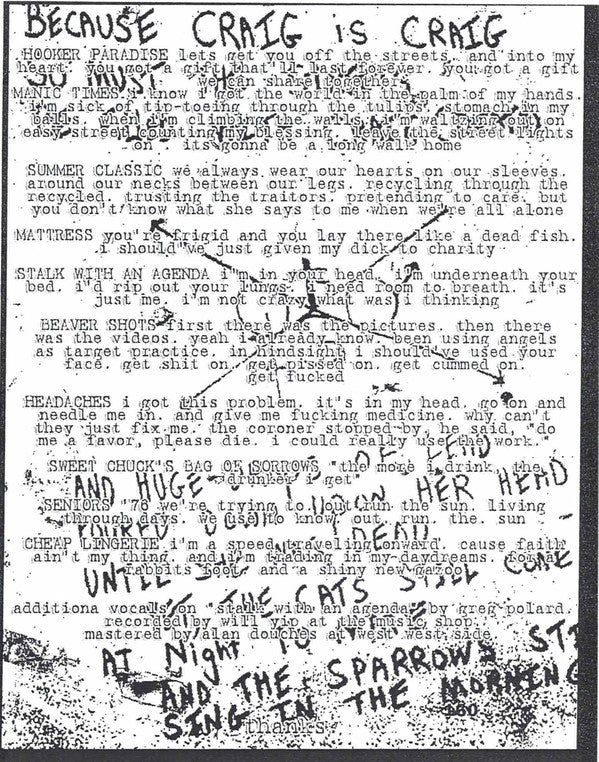 BECAUSE CRAIG iS CRAIG
HOOKER PARADISE lets get you off the streets. and into my
heart. you got a gift that'll last forever. you got a gift
SO MUST
we can share together
MANIC TIMES i know i got the world in the palm of my hands.
i'm sick of tip-toeing through the tulips. stomach in my
balls. when i'm climbing the walls. i'm waltzing out on
easy street counting my blessing. leave the street lights
on. its gonna be a long walk home
SUMMER CLASSIC we always wear our hearts on our sleeves.
around our necks between our legs. recycling through the
recycled. trusting the traitors. pretending to care. but
you don't know what she says to me when we're all alone
MATTRESS you're frigid and you lay there like a dead fish.
i should've just given my dick to charity
STALK WITH AN AGENDA i"m in your head. i'm underneath your
bed. i'd rip out your lungs. i need room to breath. it"s
just me. i'm not crazy what was i thinking
BEAVER SHOTS first there was the pictures. then there
was the videos. yeah i already know. been using angels
as target practice. in hindsight i should've used your
face. get shit on. get pissed on. get cummed on.
get fucked
HEADACHES i got this problem. it's in my head. go on and
needle me in. and give me fucking medicine. why can't
they just fix me. the coroner stopped by, he said, "do
me a favor, please die. i could really use the work."
OF LEAD
SWEET CHUCK'S BAG OF SORROWS "the more i drink, the
drunker i get"
AND HUGE UPON HER HEAD
SENIORS '76 we're trying to out run the sun. living
through days. we use to know. out. run. the. sun
POURED DOWN DEAD
CHEAP LINGERIE i'm a speed traveling onward. cause faith
ain't my thing. and i'm trading in my daydreams. for a
rabbits foot. and a shiny new gazoo
UNTIL STILL COME
THE CATS
additiona vocals on "stalk with an agenda" by greg polard.
recorded by will yip at the music shop.
mastered by alan douches at west west side
AT Night TO
AND THE SPARROWS STI
SING IN THE MORNING
thanks